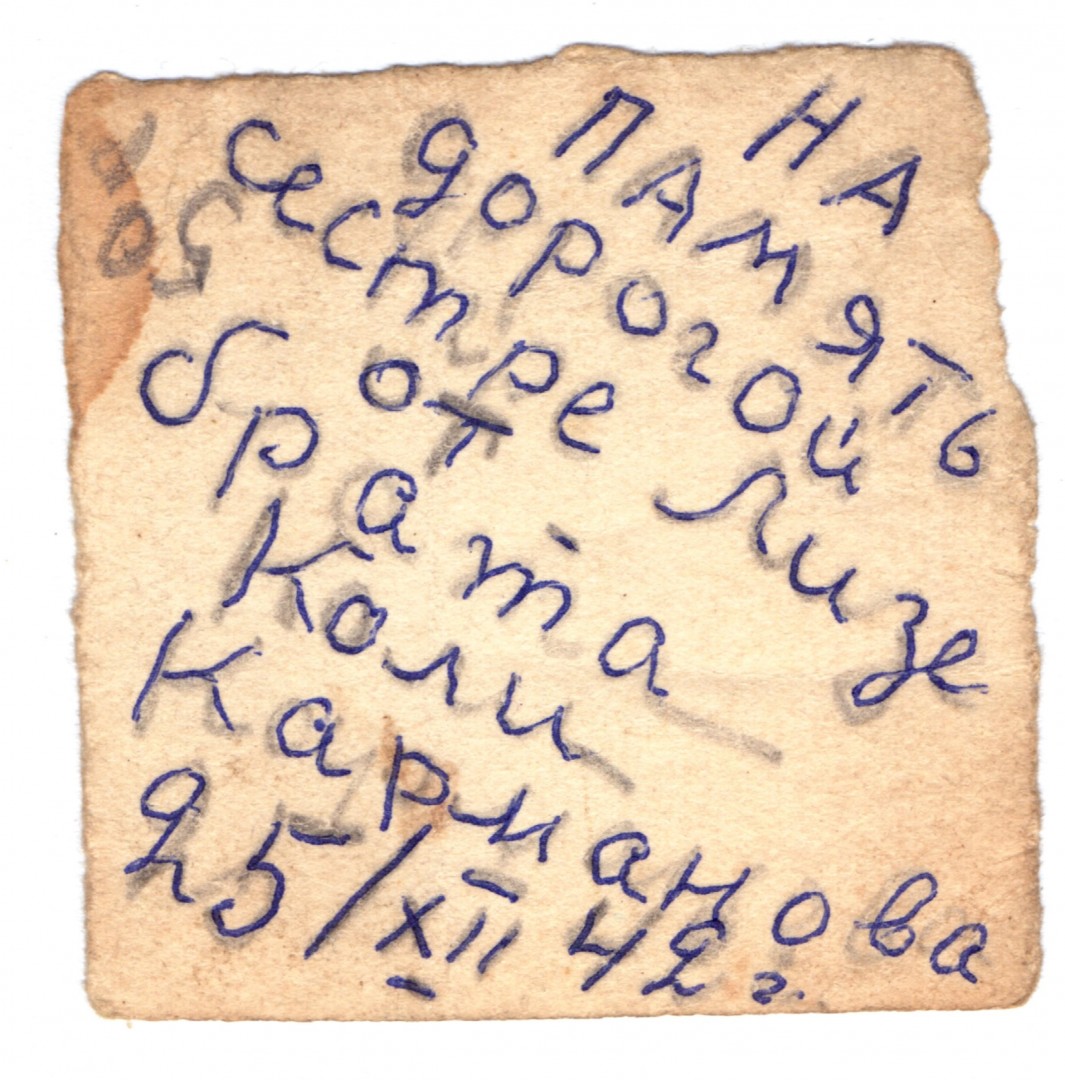 НА
ПАМЯТЬ
дорогой
сестре Лизе
от
брата
Коли
Карманова
25/XII 42 г.